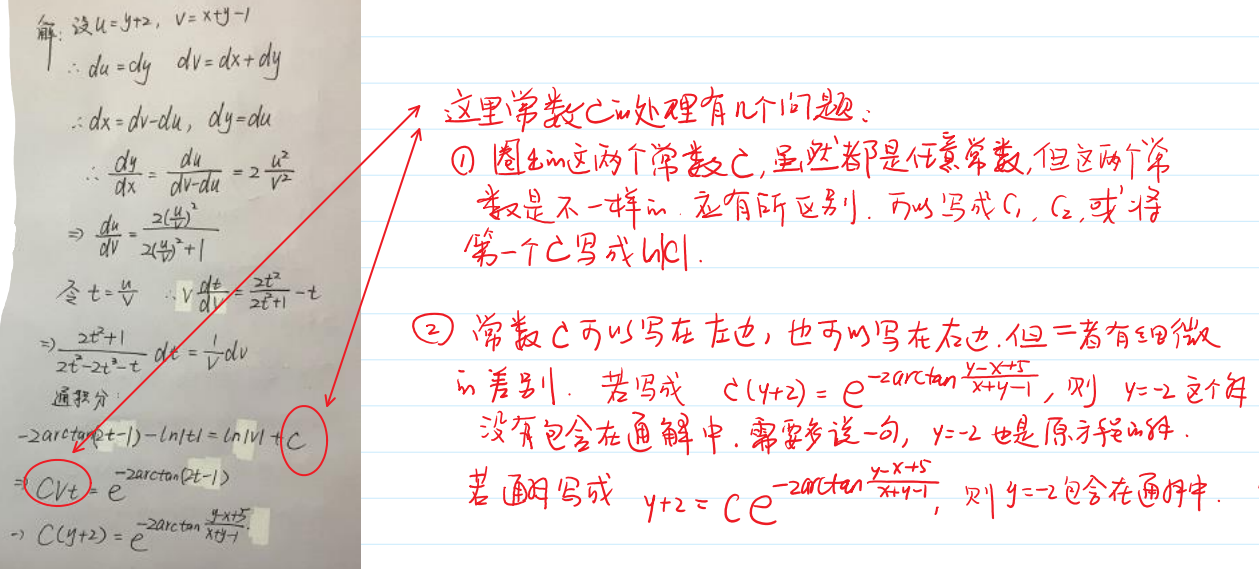 解: 设u=y+2, v=x+y-1
∴ du=dy dv=dx+dy
∴ dx=dv-du, dy=du
∴ dy/dx = du/(dv-du) = 2 u²/v²
⇒ du/dv = 2(u/v)²/(2(u/v)²+1)
令 t=u/v ∴ v dt/dv = 2t²/(2t²+1) - t
⇒ (2t²+1)/(2t²-2t³-t) dt = 1/v dv
通积分:
-2arctan(2t-1)-ln|t|=ln|v|+C
⇒ Cvt = e^(-2arctan(2t-1))
→ C(y+2) = e^(-2arctan (y-x+5)/(x+y-1))
这里常数C的处理有几个问题:
① 圈出的这两个常数C,虽然都是任意常数,但这两个常
数是不一样的.应有所区别.可以写成C₁,C₂,或将
第一个C写成ln|C|.
② 常数C可以写在左边,也可以写在右边.但二者有细微
的差别. 若写成 C(y+2) = e^(-2arctan (y-x+5)/(x+y-1)), 则 y=-2 这个解
没有包含在通解中.需要多说一句, y=-2也是原方程的解.
若通解写成 y+2 = Ce^(-2arctan (y-x+5)/(x+y-1)), 则y=-2包含在通解中.